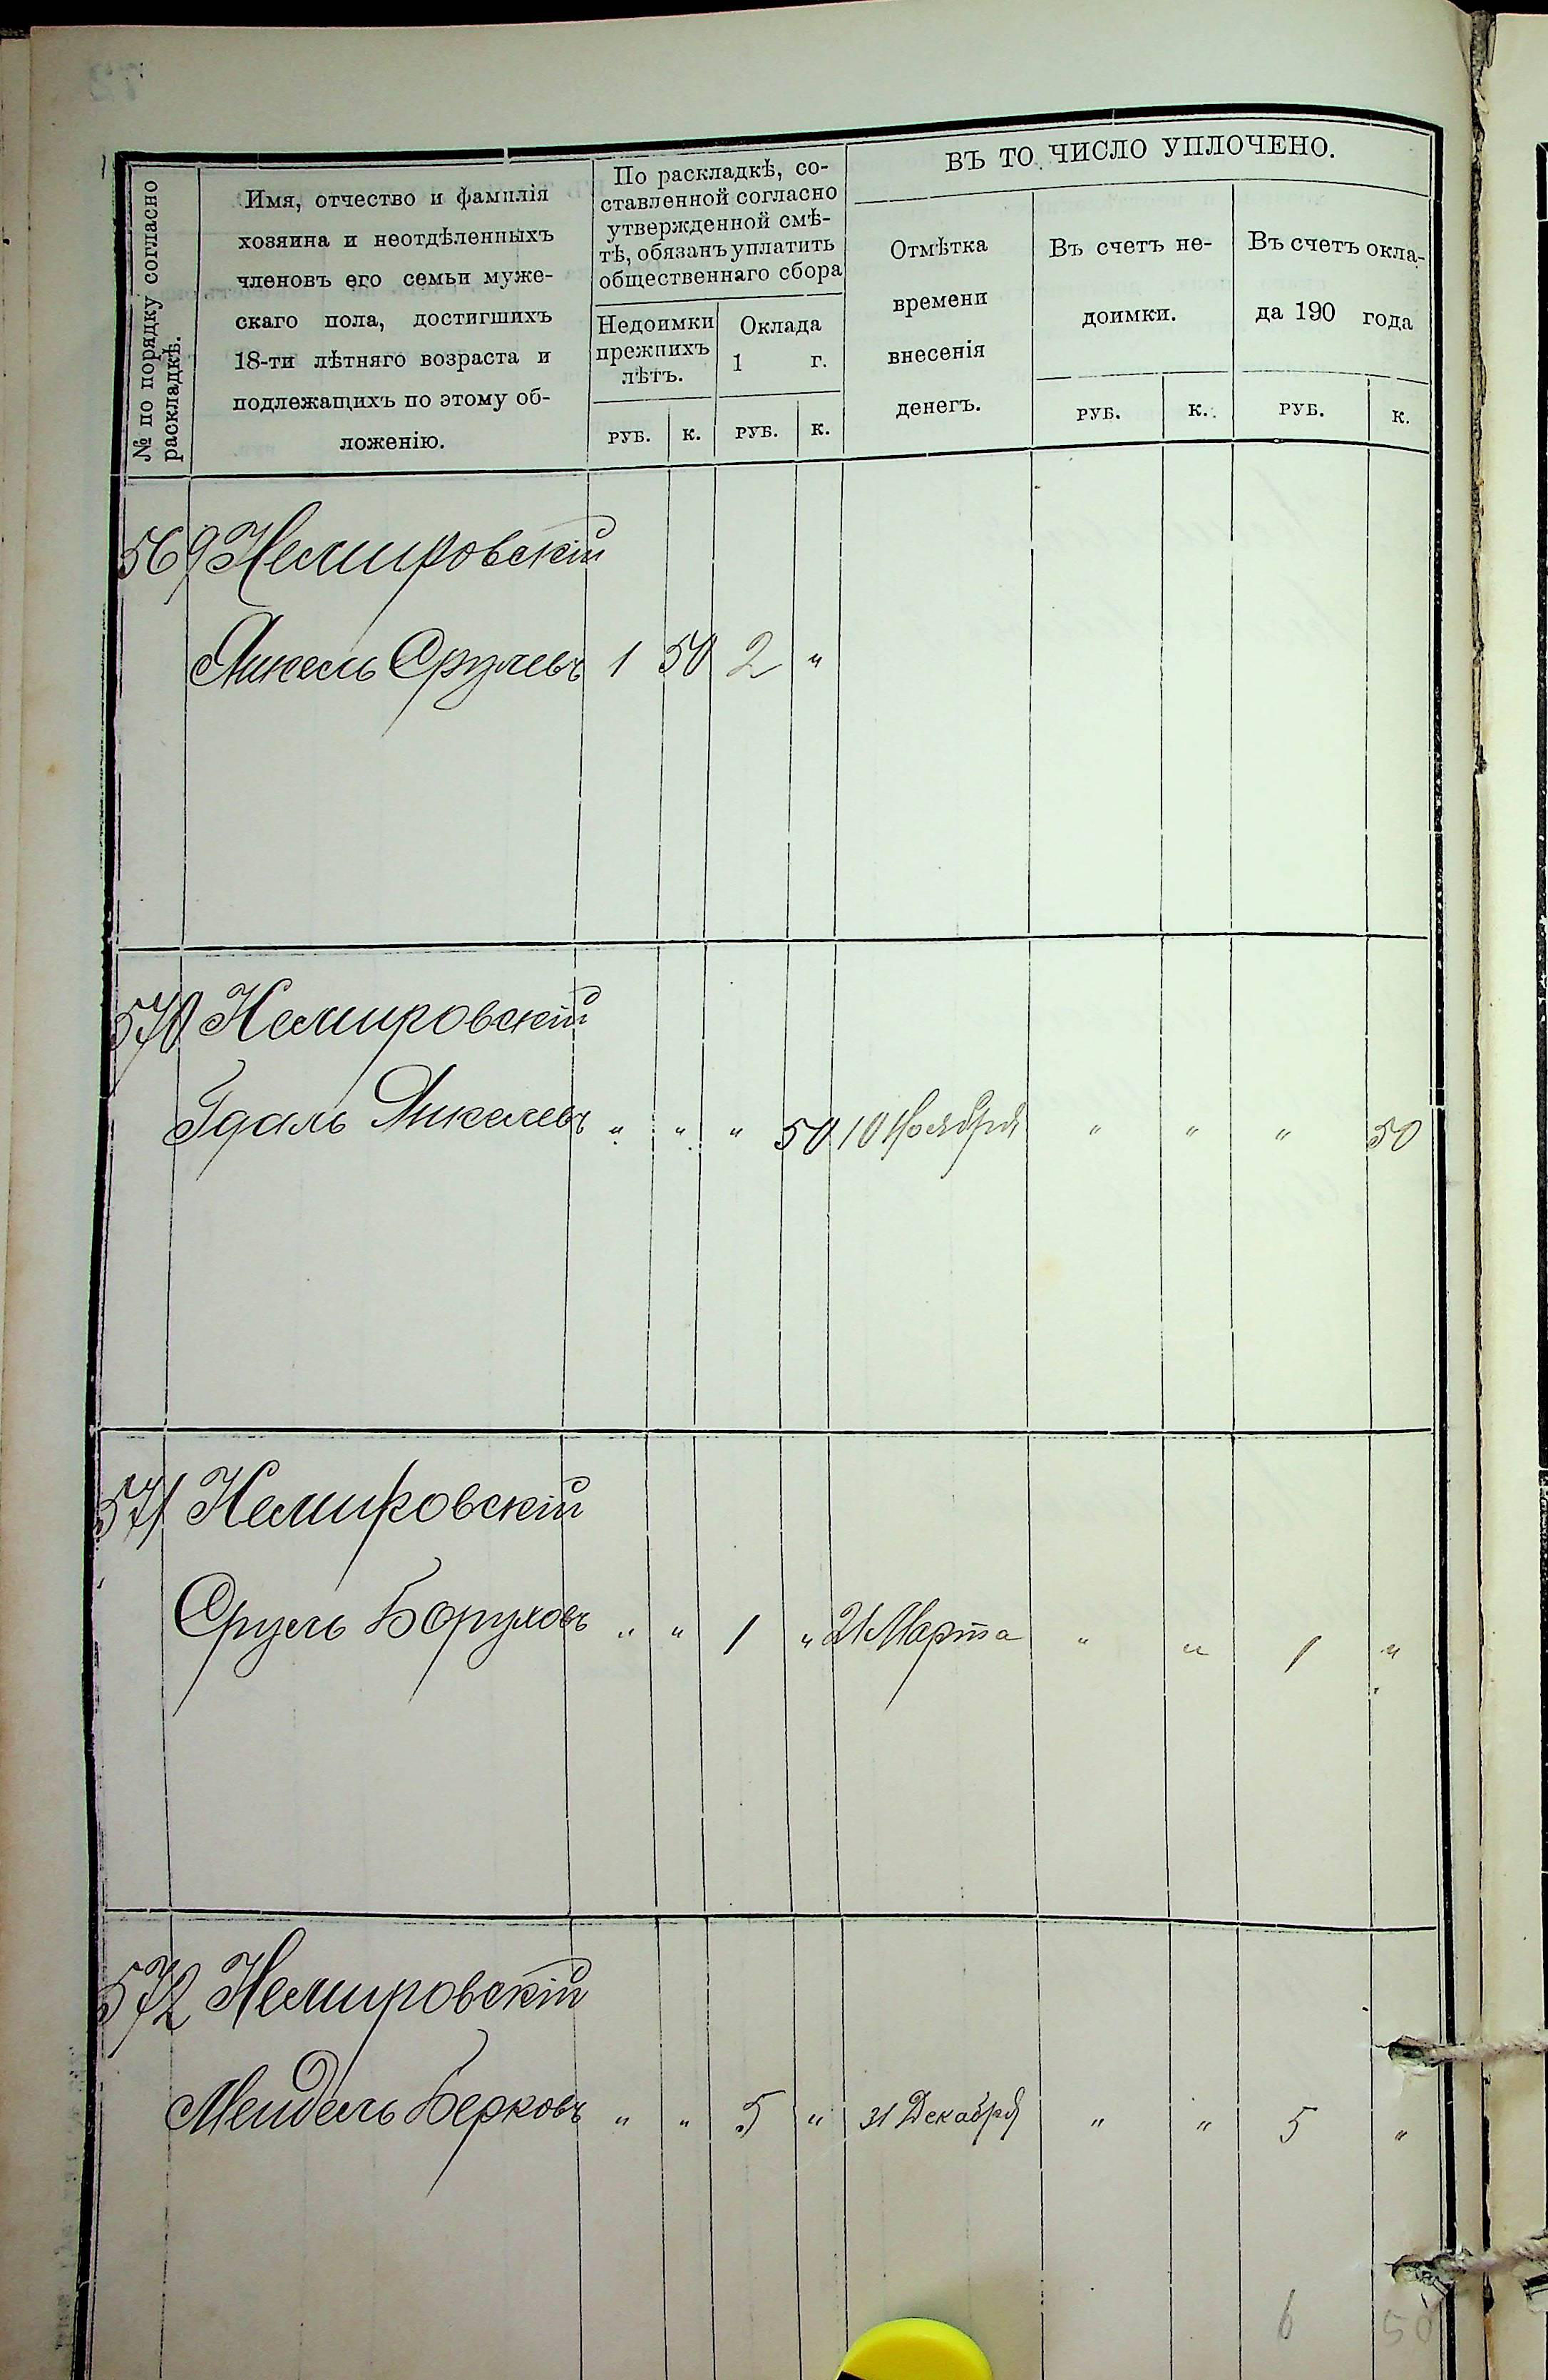 № по порядку согласно раскладкѣ.
Имя, отчество и фамилія
хозяина и неотдѣленныхъ
членовъ его семьи муже-
скаго пола, достигшихъ
18-ти лѣтняго возраста и
подлежащихъ по этому об-
ложенію.
По раскладкѣ, со-
ставленной согласно
утвержденной смѣ-
тѣ, обязанъ уплатить
общественнаго сбора
Недоимки
прежнихъ
лѣтъ.
Оклада
1 г.
РУБ. К. РУБ. К.
ВЪ ТО ЧИСЛО УПЛОЧЕНО.
Отмѣтка
времени
внесенія
денегъ.
Въ счетъ не-
доимки.
РУБ. К.
Въ счетъ окла-
да 190 года
РУБ. К.
569 Немировскій
Янкель Срулевъ 1 50 2 "
570 Немировскій
Гдаль Янкелевъ " " " 50 10 Ноября " " " 50
571 Немировскій
Сруль Боруховъ " " 1 " 21 Марта " " 1 "
572 Немировскій
Мендель Берковъ " " 5 " 31 Декабря " " 5 "
6 50